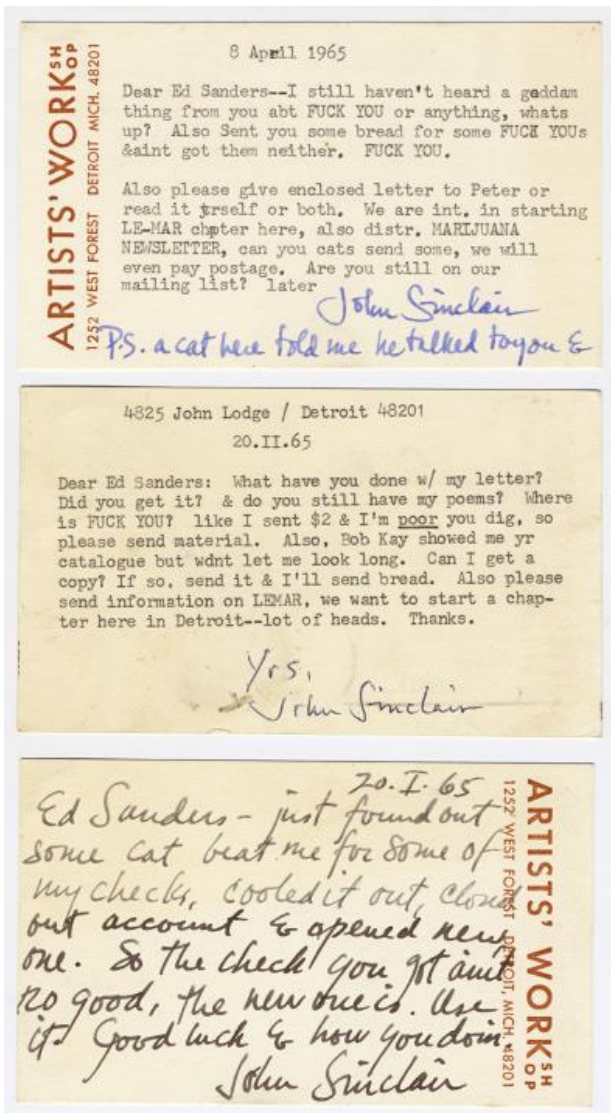 ARTISTS' WORKSHOP
1252 WEST FOREST DETROIT MICH. 48201
8 April 1965
Dear Ed Sanders--I still haven't heard a goddam
thing from you abt FUCK YOU or anything, whats
up? Also Sent you some bread for some FUCK YOUs
&aint got them neither. FUCK YOU.
Also please give enclosed letter to Peter or
read it yrself or both. We are int. in starting
LE-MAR chpter here, also distr. MARIJUANA
NEWSLETTER, can you cats send some, we will
even pay postage. Are you still on our
mailing list? later
John Sinclair
P.S. a cat here told me he talked to you &
4825 John Lodge / Detroit 48201
20.II.65
Dear Ed Sanders: What have you done w/ my letter?
Did you get it? & do you still have my poems? Where
is FUCK YOU? like I sent $2 & I'm poor you dig, so
please send material. Also, Bob Kay showed me yr
catalogue but wdnt let me look long. Can I get a
copy? If so, send it & I'll send bread. Also please
send information on LEMAR, we want to start a chap-
ter here in Detroit--lot of heads. Thanks.
Yrs,
John Sinclair
20.I.65
Ed Sanders - just found out
some cat beat me for some of
my checks, cooled it out, closed
out account & opened new
one. So the check you got aint
no good, the new one is. Use
it. Good luck & how you doin.
John Sinclair
ARTISTS' WORKSHOP
1252 WEST FOREST DETROIT, MICH. 48201